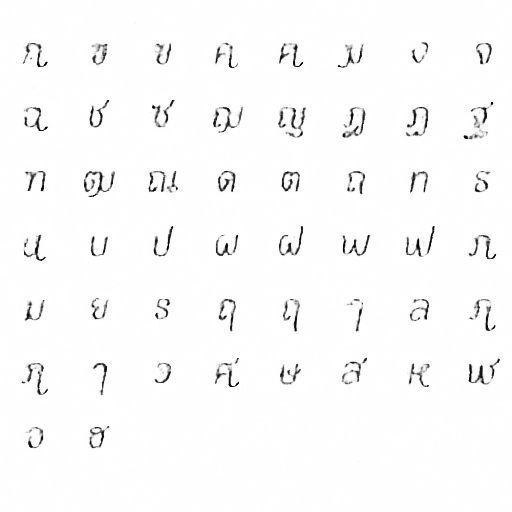 ก ฃ ข ค ค ฆ ง จ
ฉ ช ซ ฌ ญ ฎ ฎ ฐ
ฑ ฒ ณ ด ต ถ ท ธ
น บ ป ผ ฝ พ ฟ ภ
ม ย ร ฤ ฤ ๅ ล ภ
ภ ๅ ว ศ ษ ส ห ฬ
อ ฮ